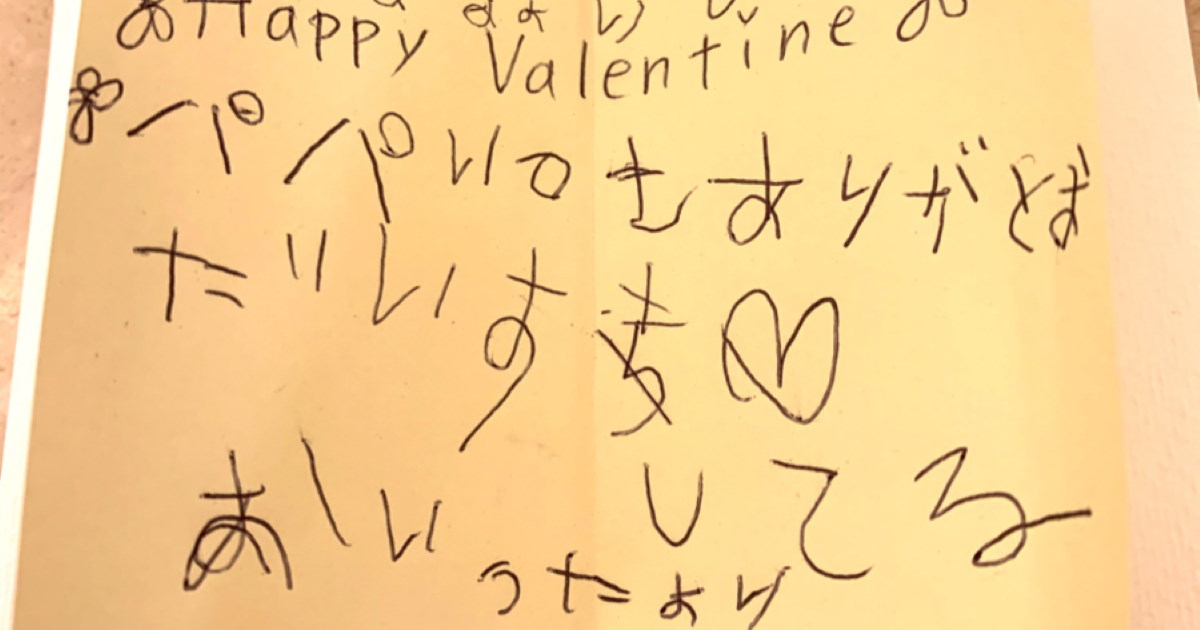 Happy Valentine
パパいつもありがとお
だいすき♡
あいしてる
うたより